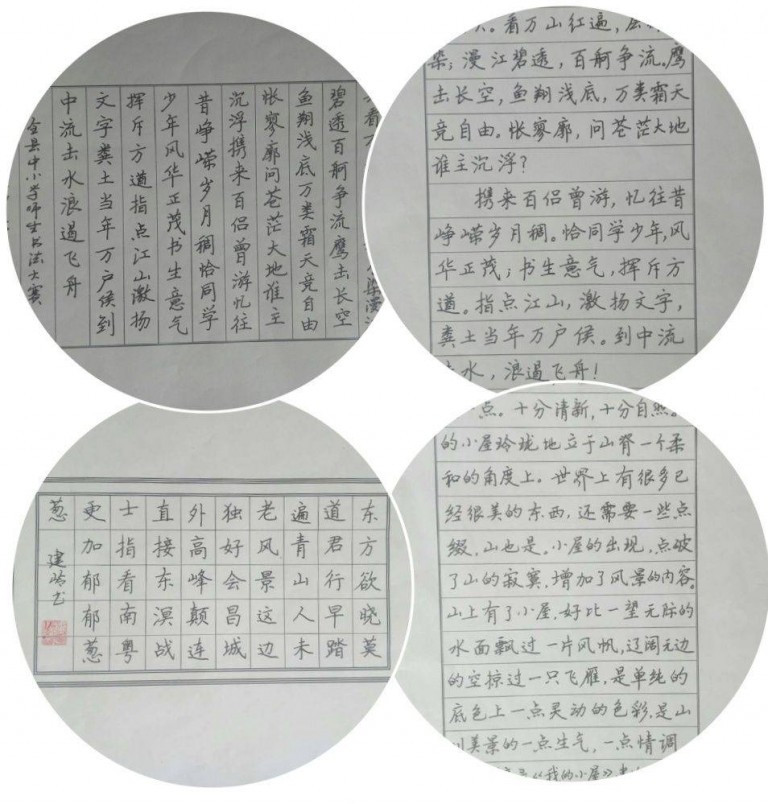 看万
染漫江
碧透百舸争流鹰击长空
鱼翔浅底万类霜天竞自由
怅寥廓问苍茫大地谁主
沉浮携来百侣曾游忆往
昔峥嵘岁月稠恰同学
少年风华正茂书生意气
挥斥方遒指点江山激扬
文字粪土当年万户侯到
中流击水浪遏飞舟
全县中小学师生书法大赛
。看万山红遍,
染;漫江碧透,百舸争流。鹰
击长空,鱼翔浅底,万类霜天
竞自由。怅寥廓,问苍茫大地
谁主沉浮?
携来百侣曾游,忆往昔
峥嵘岁月稠。恰同学少年,风
华正茂;书生意气,挥斥方
遒。指点江山,激扬文字,
粪土当年万户侯。到中流
水,浪遏飞舟!
东方欲晓莫
道君行早踏
遍青山人未
老风景这边
独好会昌城
外高峰颠连
直接东溟战
士指看南粤
更加郁郁葱
葱
点。十分清新,十分自然。
的小屋玲珑地立于山脊一个柔
和的角度上。世界上有很多已
经很美的东西,还需要一些点
缀,山也是。小屋的出现,点破
了山的寂寞,增加了风景的内容。
山上有了小屋,好比一望无际的
水面飘过一片风帆,辽阔无边
的空掠过一只飞雁,是单纯的
底色上一点灵动的色彩,是山
川美景的一点生气,一点情调
《我的小屋》